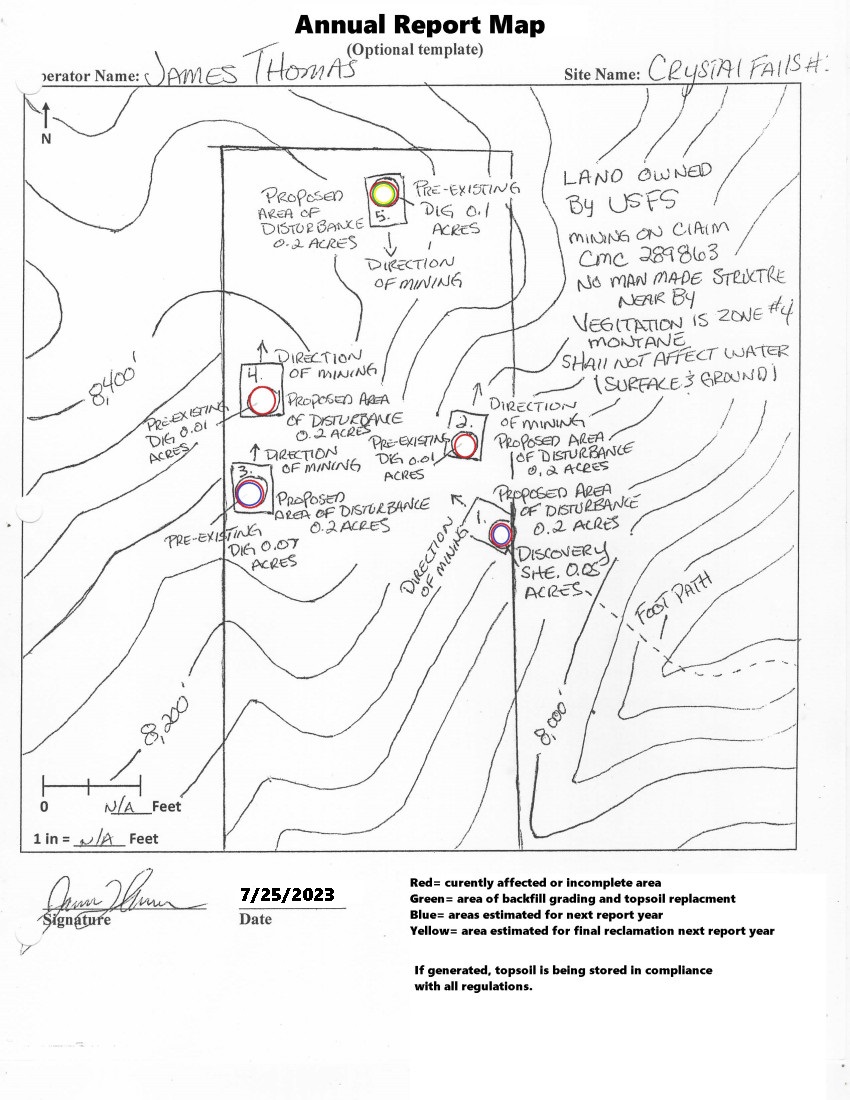 Annual Report Map
(Optional template)
perator Name: JAMES THOMAS
Site Name: CRYSTAL FALLS #
N
LAND OWNED
By USFS
MINING ON CLAIM
CMC 289863
NO MAN MADE STRUCTRE
NEAR BY
VEGITATION IS ZONE #4
MONTANE
SHALL NOT AFFECT WATER
(SURFACE & GROUND)
PROPOSED
AREA OF
DISTURBANCE
0.2 ACRES
5.
PRE-EXISTING
DIG 0.1
ACRES
DIRECTION
OF MINING
8,400'
4.
DIRECTION
OF MINING
PROPOSED AREA
OF DISTURBANCE
0.2 ACRES
PRE-EXISTING
DIG 0.01
ACRES
2.
DIRECTION
OF MINING
PROPOSED AREA
OF DISTURBANCE
0.2 ACRES
PRE-EXISTING
DIG 0.01
ACRES
3.
DIRECTION
OF MINING
PROPOSED
AREA OF DISTURBANCE
0.2 ACRES
PRE-EXISTING
DIG 0.07
ACRES
1.
PROPOSED AREA
OF DISTURBANCE
0.2 ACRES
DIRECTION
OF MINING
DISCOVERY
SITE. 0.05
ACRES
FOOT PATH
8,200'
8,000'
0 N/A Feet
1 in = N/A Feet
Signature
7/25/2023
Date
Red= curently affected or incomplete area
Green= area of backfill grading and topsoil replacment
Blue= areas estimated for next report year
Yellow= area estimated for final reclamation next report year
If generated, topsoil is being stored in compliance
with all regulations.